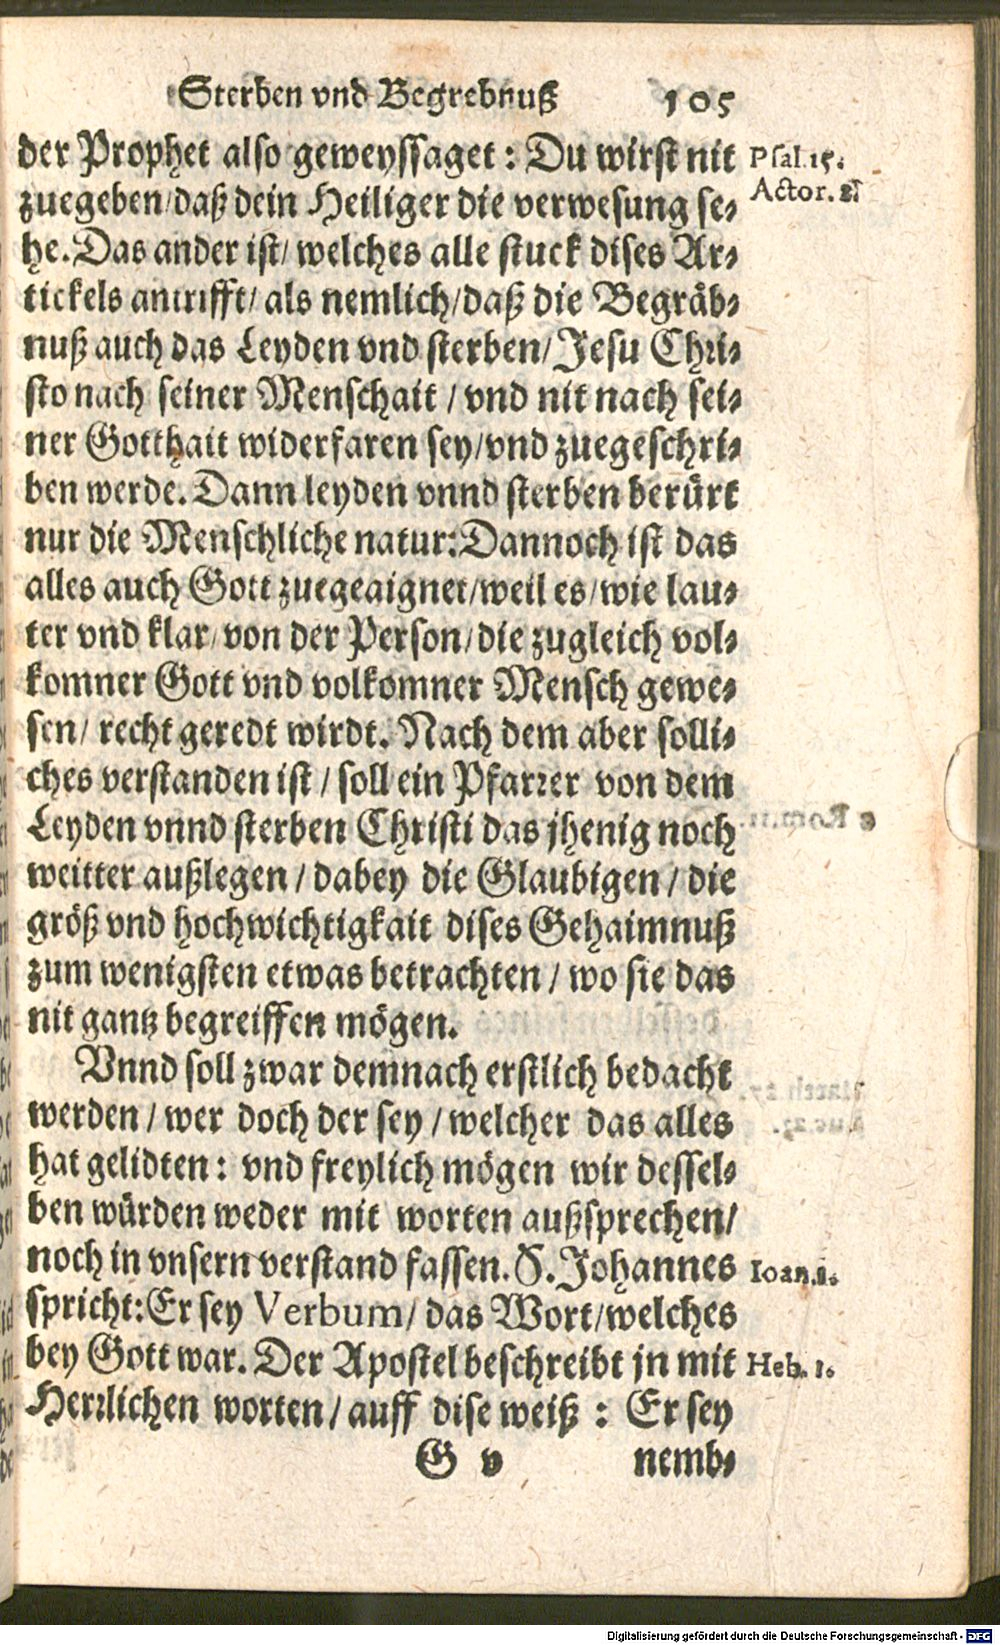 Sterben vnd Begrebnuß 105
der Prophet also geweyssaget : Du wirst nit Psal.15.
zuegeben/daß dein Heiliger die verwesung se- Actor. 2.
he. Das ander ist/ welches alle stuck dises Ar-
tickels antrifft/ als nemlich/daß die Begräb-
nuß auch das Leyden vnd sterben/Jesu Chri-
sto nach seiner Menschait / vnd nit nach sei-
ner Gotthait widerfaren sey/vnd zuegeschri-
ben werde. Dann leyden vnnd sterben berürt
nur die Menschliche natur: Dannoch ist das
alles auch Gott zuegeaignet/weil es/wie lau-
ter vnd klar/von der Person/die zugleich vol-
komner Gott vnd volkomner Mensch gewe-
sen/ recht geredt wirdt. Nach dem aber solli-
ches verstanden ist / soll ein Pfarrer von dem
Leyden vnnd sterben Christi das jhenig noch
weitter außlegen / dabey die Glaubigen / die
größ vnd hochwichtigkait dises Gehaimnuß
zum wenigsten etwas betrachten / wo sie das
nit gantz begreiffen mögen.
Vnnd soll zwar demnach erstlich bedacht
werden / wer doch der sey / welcher das alles
hat gelidten : vnd freylich mögen wir dessel-
ben würden weder mit worten außsprechen/
noch in vnsern verstand fassen. S. Johannes Ioan.1.
spricht: Er sey Verbum/ das Wort/welches
bey Gott war. Der Apostel beschreibt jn mit Heb. 1.
Herrlichen worten/ auff dise weiß : Er sey
G v nemb-
Digitalisierung gefördert durch die Deutsche Forschungsgemeinschaft - DFG